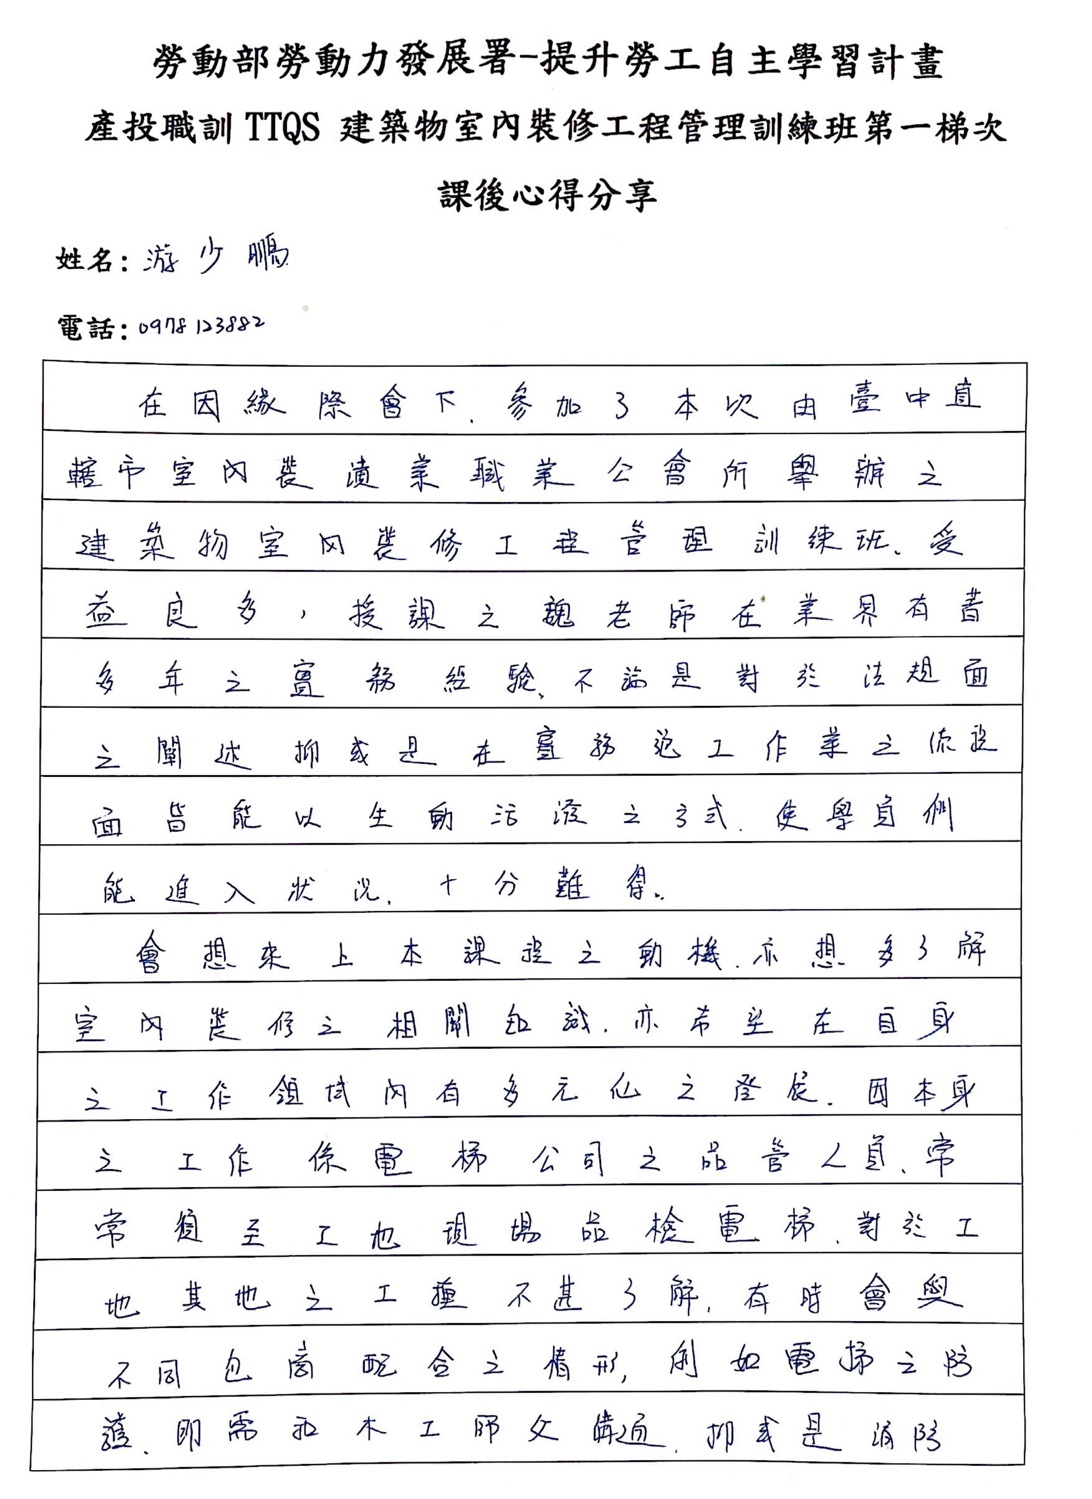 勞動部勞動力發展署-提升勞工自主學習計畫
產投職訓 TTQS 建築物室內裝修工程管理訓練班第一梯次
課後心得分享
姓名：游少鵬
電話：0978123882
在因緣際會下，參加了本次由臺中直
轄市室內裝潢業職業公會所舉辦之
建築物室內裝修工程管理訓練班、受
益良多，授課之魏老師在業界有著
多年之實務經驗、不論是對於法規面
之闡述抑或是在實務施工作業之流程
面皆能以生動活潑之方式，使學員們
能進入狀況，十分難得。
會想來上本課程之動機，亦想多了解
室內裝修之相關知識，亦希望在自身
之工作領域內有多元化之發展，因本身
之工作係電梯公司之品管人員、常
常須至工地現場品檢電梯，對於工
地其他之工種不甚了解，有時會與
不同包商配合之情形，例如電梯之防
護、即需和木工師父溝通，抑或是消防